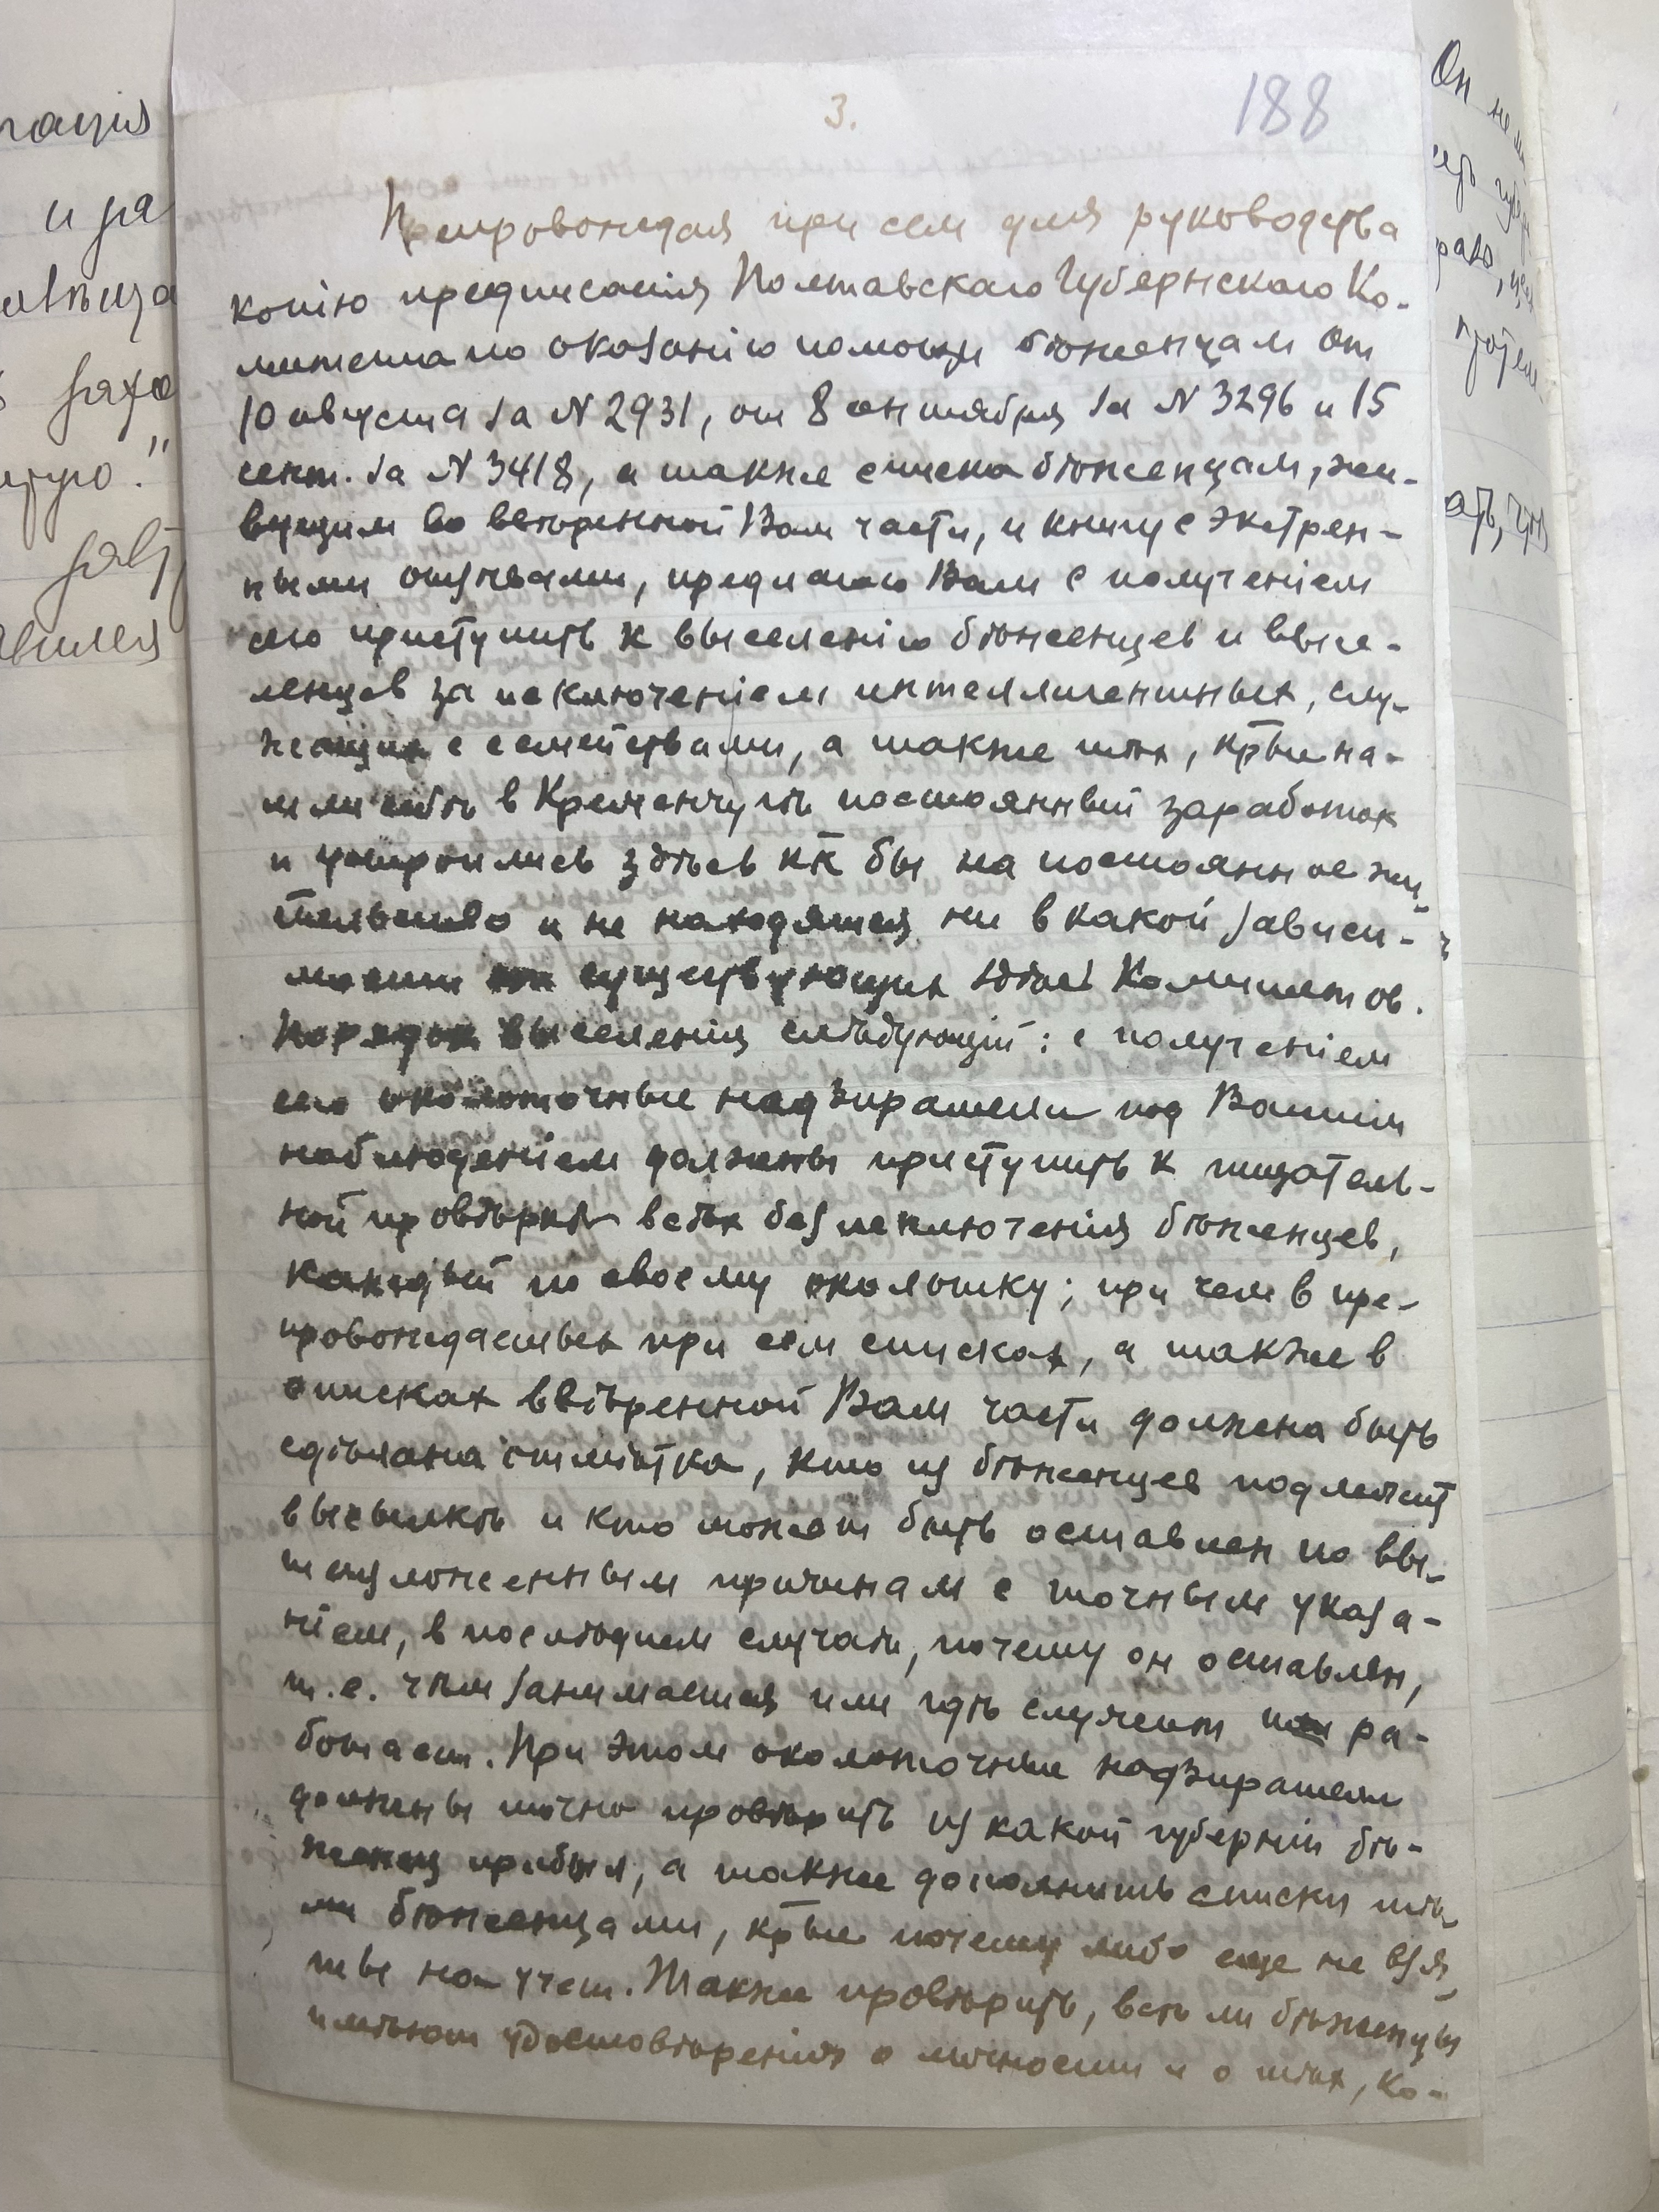 3.
188
Препровождая при сем для руководства
копію предписанія Полтавскаго Губернскаго Ко-
митета по оказанію помощи бѣженцам от
10 августа за N 2931, от 8 сентября за N 3296 и 15
сент. за N 3418, а также списка бѣженцам, жи-
вущим во ввѣренной Вам части, и книгу с экстрен-
ными отзывами, предлагаю Вам с полученіем
сего приступить к выселенію бѣженцев и высе-
ленцев за исключеніем интеллигентных, слу-
жащих с семействами, а также тѣх, кр̄ые на-
шли себѣ в Кременчугѣ постоянный заработок
и устроились здѣсь кк̄ бы на постоянное жи-
тельство и не находятся ни в какой зависи-
мости от существующих здѣсь Комитетов.
Порядок выселенія слѣдующій: с полученіем
сего околоточные надзиратели под Вашим
наблюденіем должны приступить к тщатель-
ной провѣркѣ всѣх без исключенія бѣженцев,
каждый по своему околотку; при чем в пре-
провождаемых при сем списках, а также в
списках ввѣренной Вам части должна быть
сдѣлана отмѣтка, кто из бѣженцев подлежит
высылкѣ и кто может быть оставлен по вы-
шеизложенным причинам с точным указа-
ніем, в послѣднем случаѣ, почему он оставлен,
т.е. чѣм занимается или гдѣ служит ра-
ботает. При этом околоточные надзиратели
должны точно провѣрить из какой губерніи бѣ-
женец прибыл, а также дополнить списки тѣ-
ми бѣженцами, кр̄ые почему либо еще не взя-
ты на учет. Также провѣрить, всѣ ли бѣженцы
имѣют удостовѣренія о личности и о тѣх, ко-
гація
и за
захо
Он
ать, что